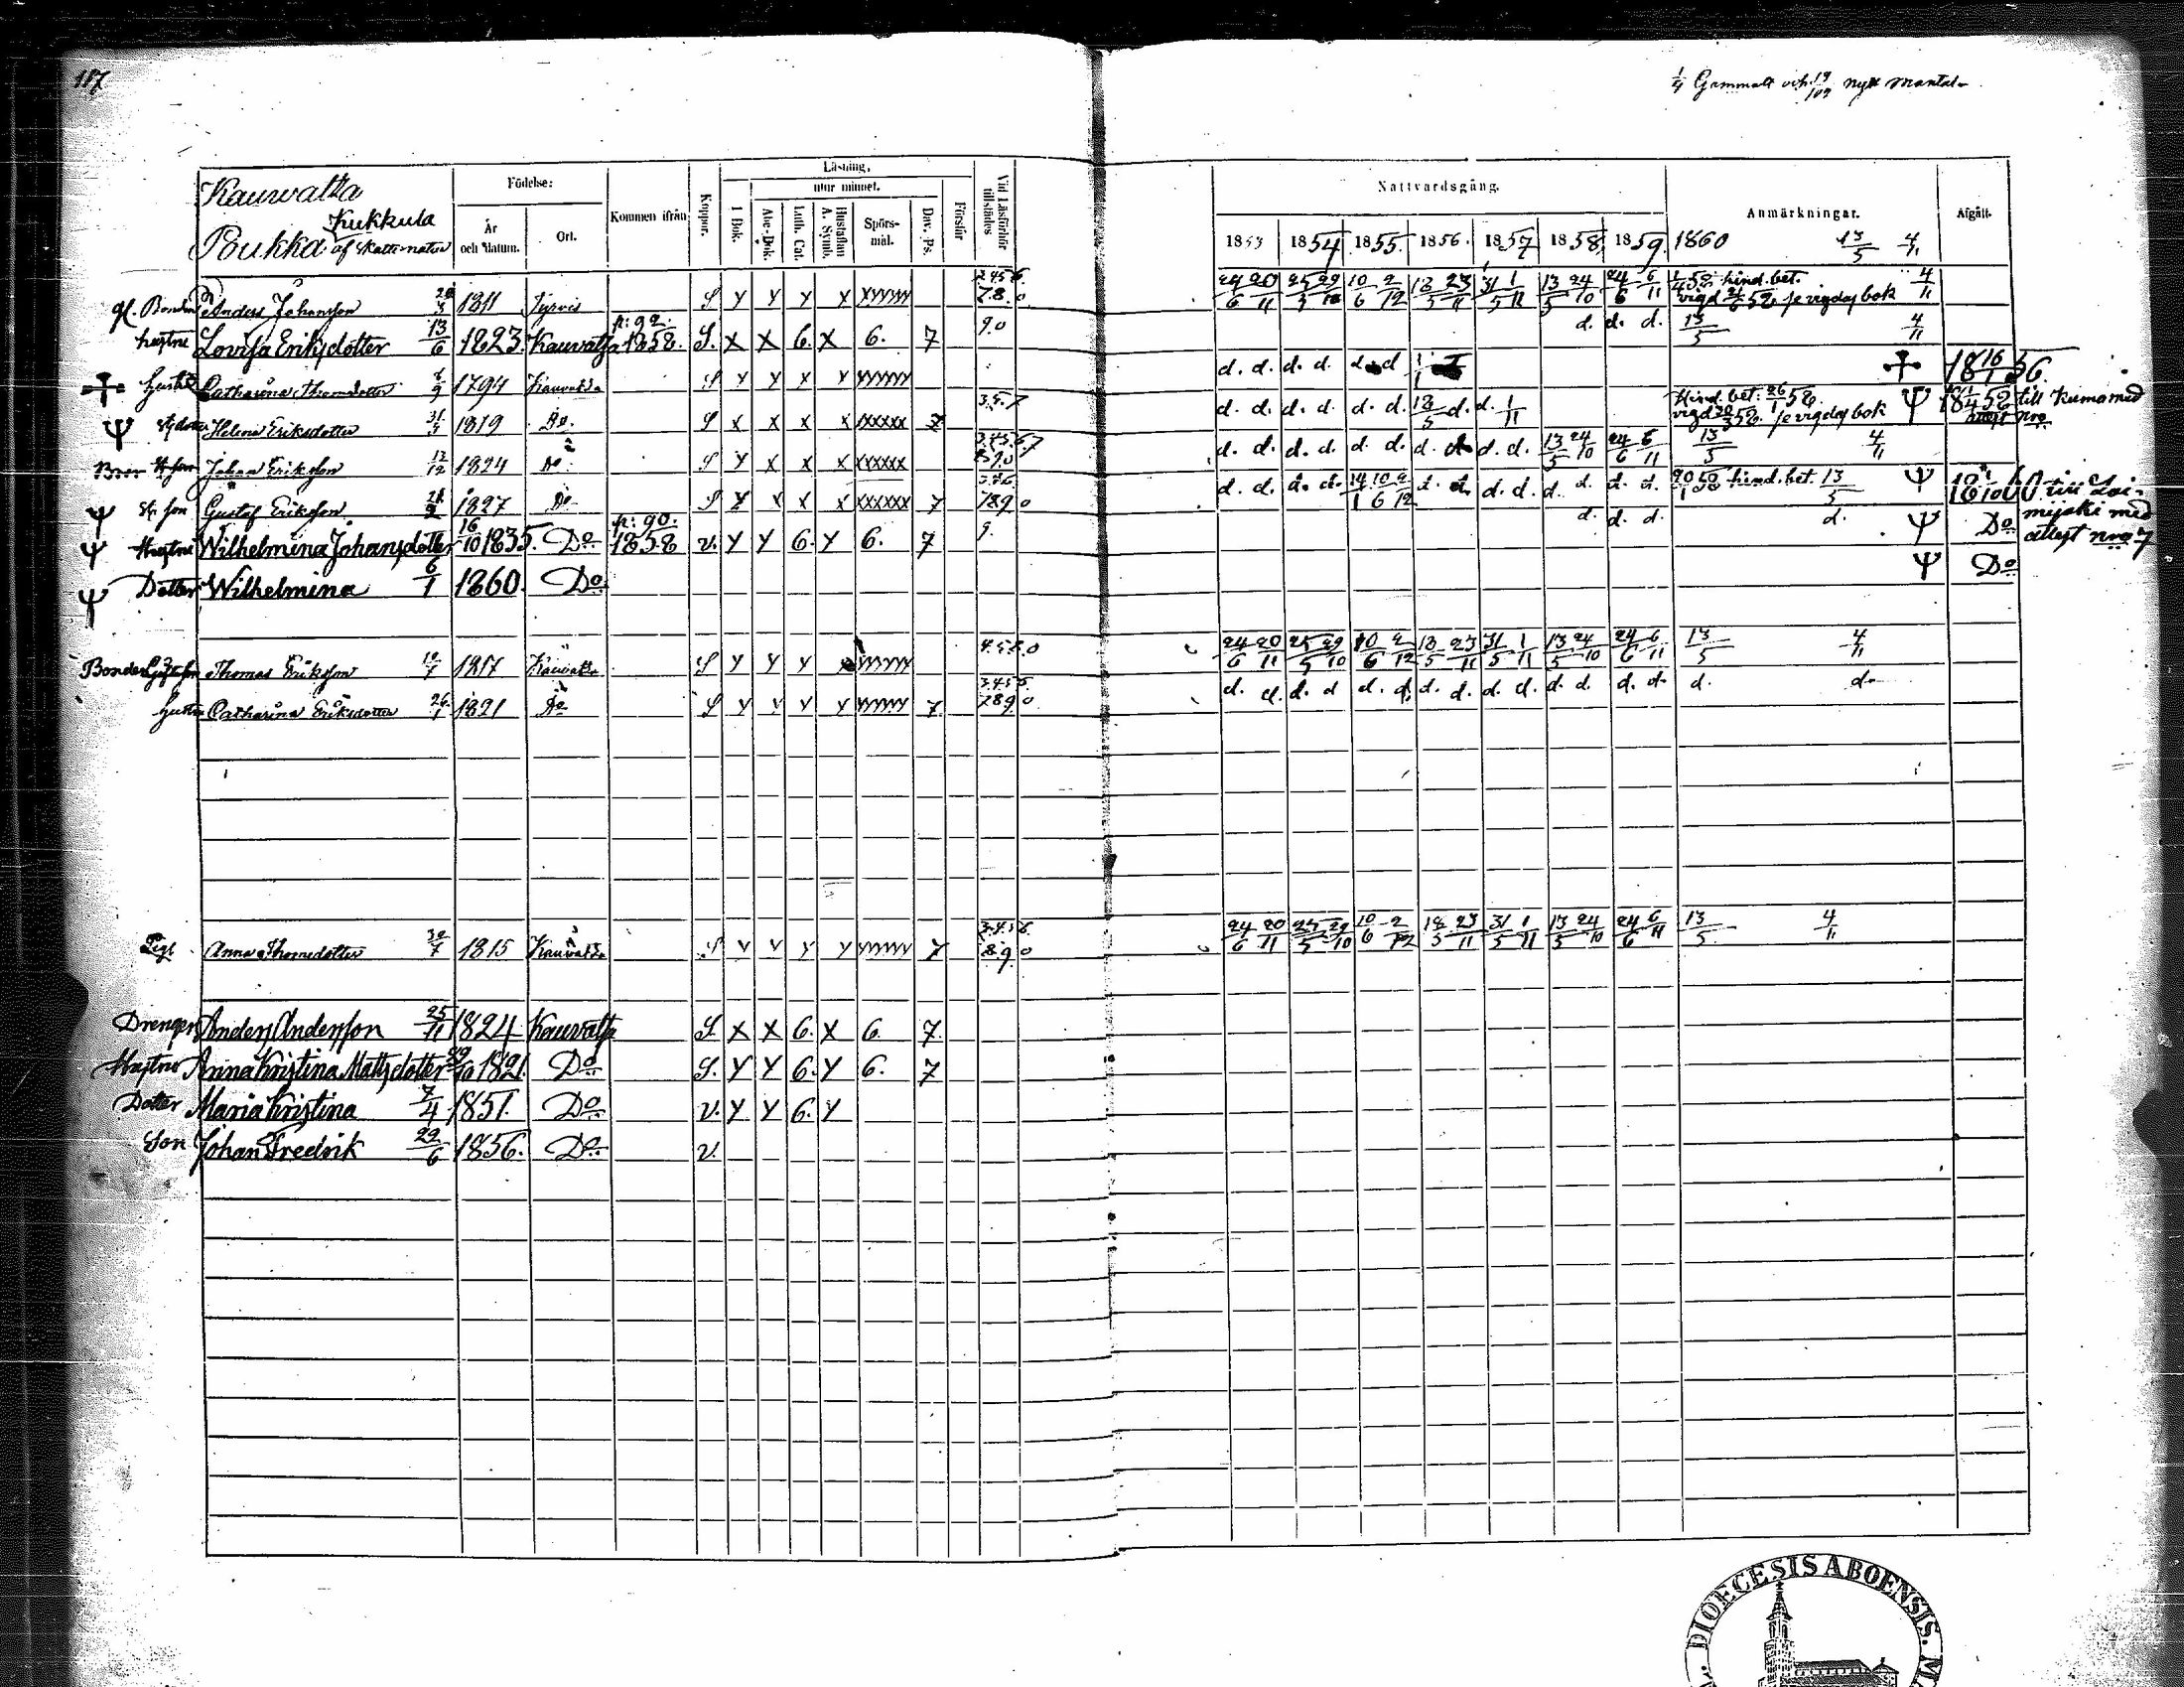 187
1/4 Gammalt och 19/109 nytt mantal
Kauvatza
Kukkula
Poukka af Skatte natur
Födelse:
År och datum.
Ort.
Kommen ifrån
Koppor.
Läsning.
I Bok.
utur minnet.
Abc-Bok.
Luth. Cat.
Hustaflan A. Symb.
Spörsmål.
Dav. Ps.
Förstår
Vid Läsförhör tillstädes
Nattvardsgång.
1853 1854 1855. 1856. 1857 1858. 1859.
Anmärkningar.
1860 13/5 4/11
Afgått.
Bonden Anders Johansson 1811 S y y y y yyyyyy 24/6 20/11 25/5 29/10 10/6 2/12 18/5 23/11 31/5 1/11 13/5 24/10 24/6 6/11 hind. bet. vigd se vigdas bok 4/11
hustru Lovisa Eriksdotter 13/6 1823. Kauvatza p: 92. 1858. S. x x 6. x 6. 7 9.0 d. d. d. 13/5 4/11
hustru Catharina Thomsdotter 6/9 1794 Kauvatza S y y y y yyyyyy d. d. d. d. d. d 18 16/1 56.
Helena Eriksdotter 31/5 1819 Do S x x x x xxxxxx 7 3.5.7 d. d. d. d. d. d. 18/5 d. d. 1/11 Hind. bet. 26/1 58. vigd se vigdas bok till Kumo med attest nro
Johan Eriksson 13/12 1824 Do S y x x x xxxxxx d. d. d. d. d. d. d. d. d. d. 13/5 24/10 24/6 6/11 13/5 4/11
son Gustaf Eriksson 1827 Do S x x x x xxxxxx 7 789 0 d. d. d. d. 14/1 10/6 2/12 d. d. d. d. d. d. d. d. hind. bet. 13/5 till Loimijoki med attest nro 7
Hustru Wilhelmina Johansdotter 16/10 1835. Do p: 90. 1858 v. y y 6. y 6. 7 9. d. d. d. d. Do
Dotter Wilhelmina 6/1 1860. Do Do
Bonde Thomas Eriksson 1817 Kauvatza S y y y x yyyyyy 24/6 20/11 25/5 29/10 10/6 2/12 18/5 23/11 31/5 1/11 13/5 24/10 24/6 6/11 13/5 4/11
hustru Catharina Eriksdotter 26/1 1821 Do S y y y y yyyyyy 7 789 0 d. d. d. d d. d. d. d. d. d. d. d. d. d. d. d.
Anna Thomsdotter 30/7 1815 Kauvatza S y y y y yyyyyy 7 89 0 24/6 20/11 25/5 29/10 10/6 2/12 18/5 23/11 31/5 1/11 13/5 24/10 24/6 6/11 13/5 4/11
Drengen Anders Andersson 25/11 1824 Kauvatza S. x x 6. x 6. 7.
Hustru Anna Kristina Mattsdotter 29/10 1821. Do S. y y 6. y 6. 7
Dotter Maria Kristina 7/4 1851. Do v. y y 6. y
Son Johan Fredrik 22/6 1856. Do v.
DIOECESIS ABOENSIS.